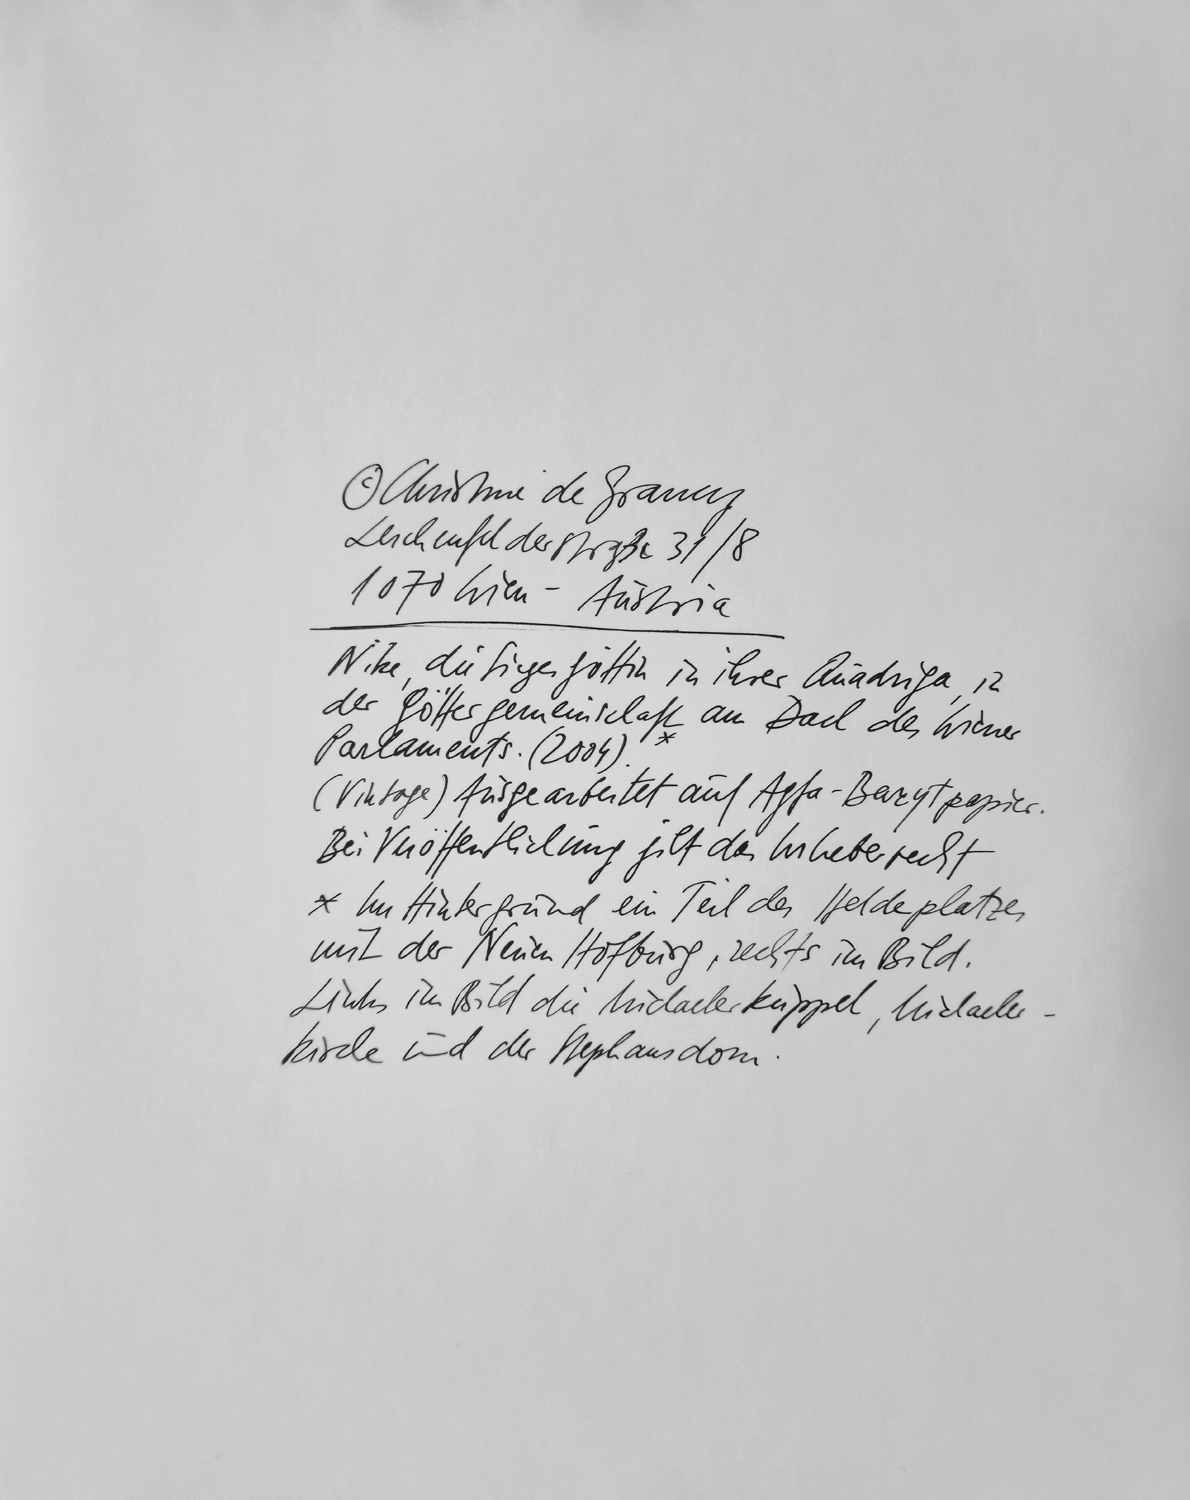 © Christine de Grancy
Lerchenfelderstraße 31/8
1070 Wien - Austria
Nike, die Siegesgöttin in ihrer Quadriga, in
der Göttergemeinschaft am Dach des Wiener
Parlaments. (2004). *
(Vintage) Ausgearbeitet auf Agfa-Barytpapier.
Bei Veröffentlichung gilt das Urheberrecht
* Im Hintergrund ein Teil des Heldenplatzes
mit der Neuen Hofburg, rechts im Bild.
Links im Bild die Michaelerkuppel, Michaeler-
kirche und der Stephansdom.